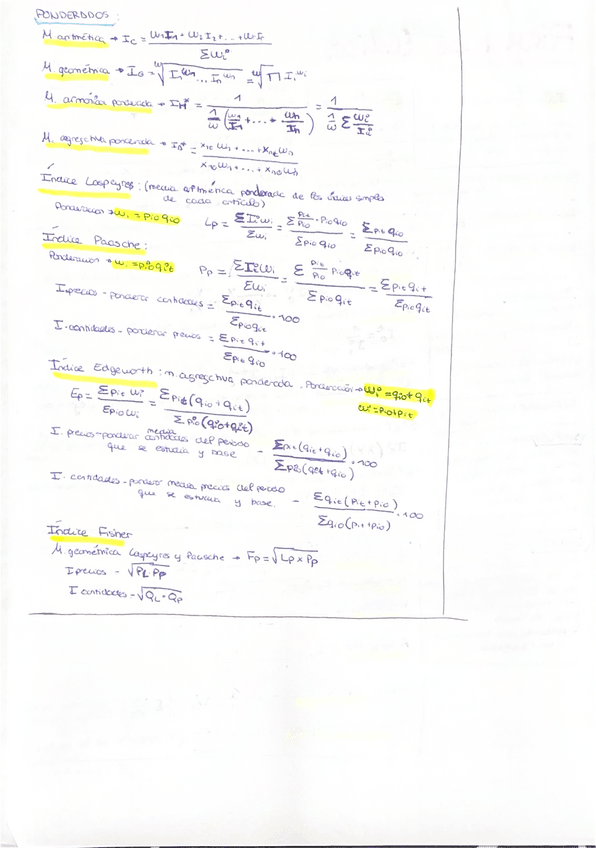 PONDERADOS:
M. aritmética → I_C = (w₁I₁ + w₂I₂ + ... + wᵢIᵢ) / Σwᵢ
M geométrica → I_G = ʷ√(I₁^w₁ ... Iₙ^wₙ) = ʷ√(Π Iᵢ^wᵢ)
M. armónica ponderada → I_H = 1 / (1/w (w₁/I₁ + ... + wₙ/Iₙ)) = 1 / (1/w Σ wᵢ/Iᵢ)
M. agregativa ponderada → = (x₁t w₁ + ... + xₙt wₙ) / (x₁₀w₁ + ... + xₙ₀wₙ)
Índice Laspeyres: (media aritmética ponderada de los simples
de cada artículo)
→ wᵢ = pᵢ₀ qᵢ₀ Lp = ΣIᵢwᵢ / Σwᵢ = (Σ pᵢt/pᵢ₀ · pᵢ₀qᵢ₀) / Σpᵢ₀qᵢ₀ = Σpᵢt qᵢ₀ / Σpᵢ₀ qᵢ₀
Índice Paasche:
→ wᵢ = pᵢ₀ qᵢt Pp = ΣIᵢwᵢ / Σwᵢ = (Σ pᵢt/pᵢ₀ pᵢ₀qᵢt) / Σpᵢ₀qᵢt = Σpᵢt qᵢt / Σpᵢ₀ qᵢt
I.precios - ponderar cantidades = Σpᵢt qᵢt / Σpᵢ₀qᵢt · 100
I.cantidades - ponderar precios = Σpᵢt qᵢt / Σpᵢt qᵢ₀ · 100
Índice Edgeworth: m. agregativa ponderada. Ponderación → wᵢ = qᵢ₀ + qᵢt
wᵢ = pᵢ₀ + pᵢt
Ep = Σpᵢt wᵢ / Σpᵢ₀ wᵢ = Σpᵢt (qᵢ₀ + qᵢt) / Σpᵢ₀ (qᵢ₀ + qᵢt)
I. precios - ponderar media cantidades del periodo
que se estudia y base = Σpᵢt (qᵢt + qᵢ₀) / Σpᵢ₀ (qᵢt + qᵢ₀) · 100
I. cantidades - ponderar media precios del periodo
que se estudia y base. = Σqᵢt (pᵢt + pᵢ₀) / Σqᵢ₀ (pᵢt + pᵢ₀) · 100
Índice Fisher
M. geométrica Laspeyres y Paasche → Fp = √(Lp x Pp)
I precios - √(P_L P_P)
I cantidades - √(Q_L · Q_P)